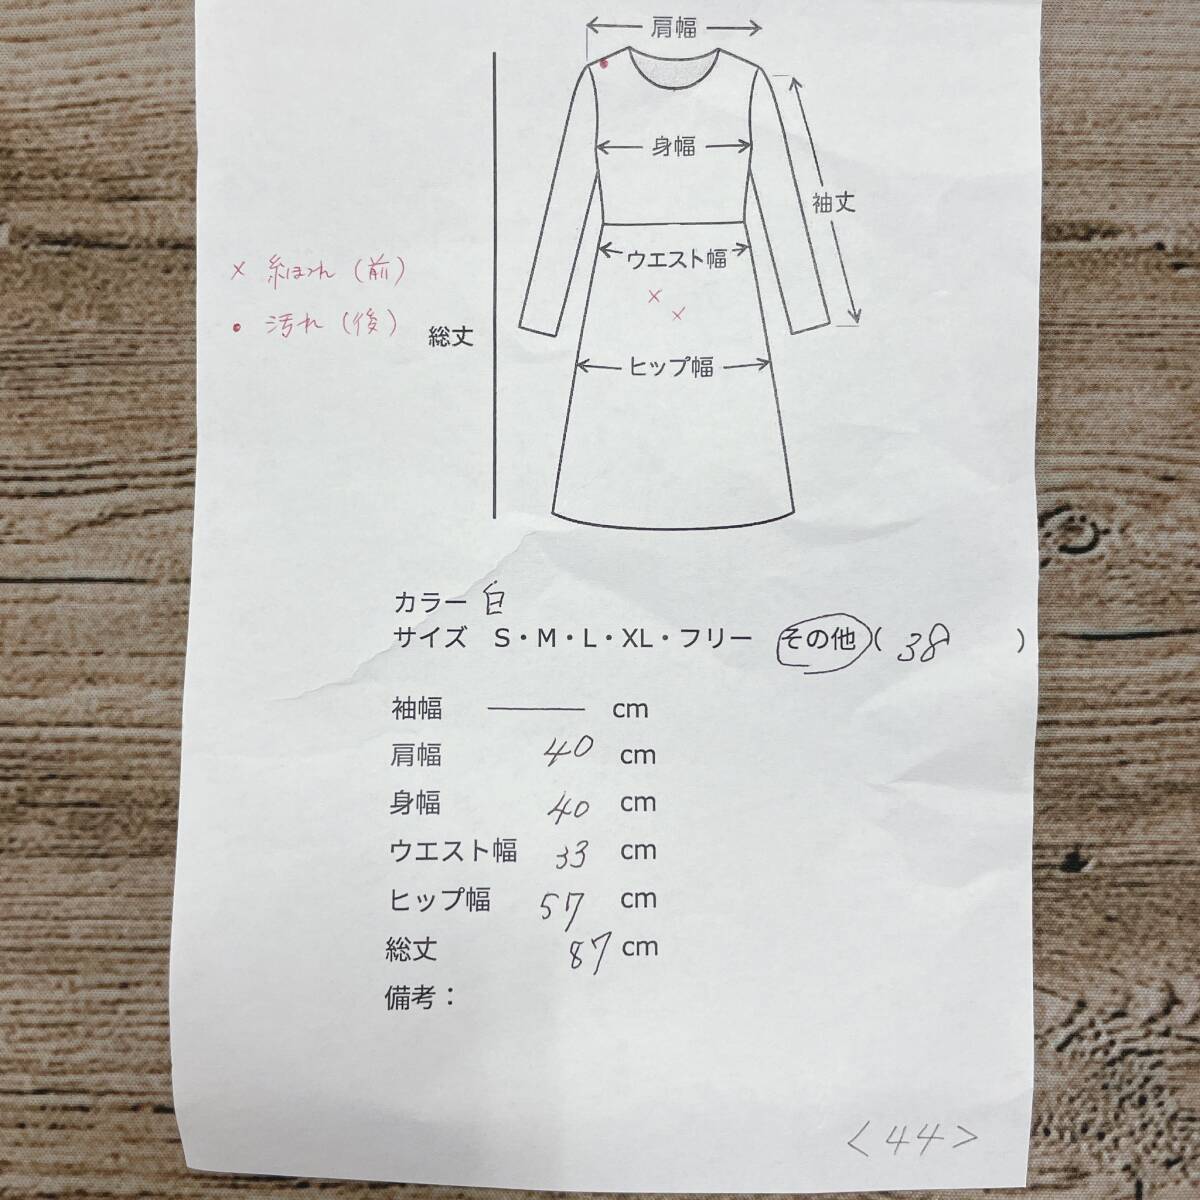 肩幅
身幅
袖丈
ウエスト幅
× 糸ほつれ (前)
× ×
• 汚れ (後)
総丈
ヒップ幅
カラー 白
サイズ S・M・L・XL・フリー その他 ( 38 )
袖幅 ——— cm
肩幅 40 cm
身幅 40 cm
ウエスト幅 33 cm
ヒップ幅 57 cm
総丈 87 cm
備考：
<44>